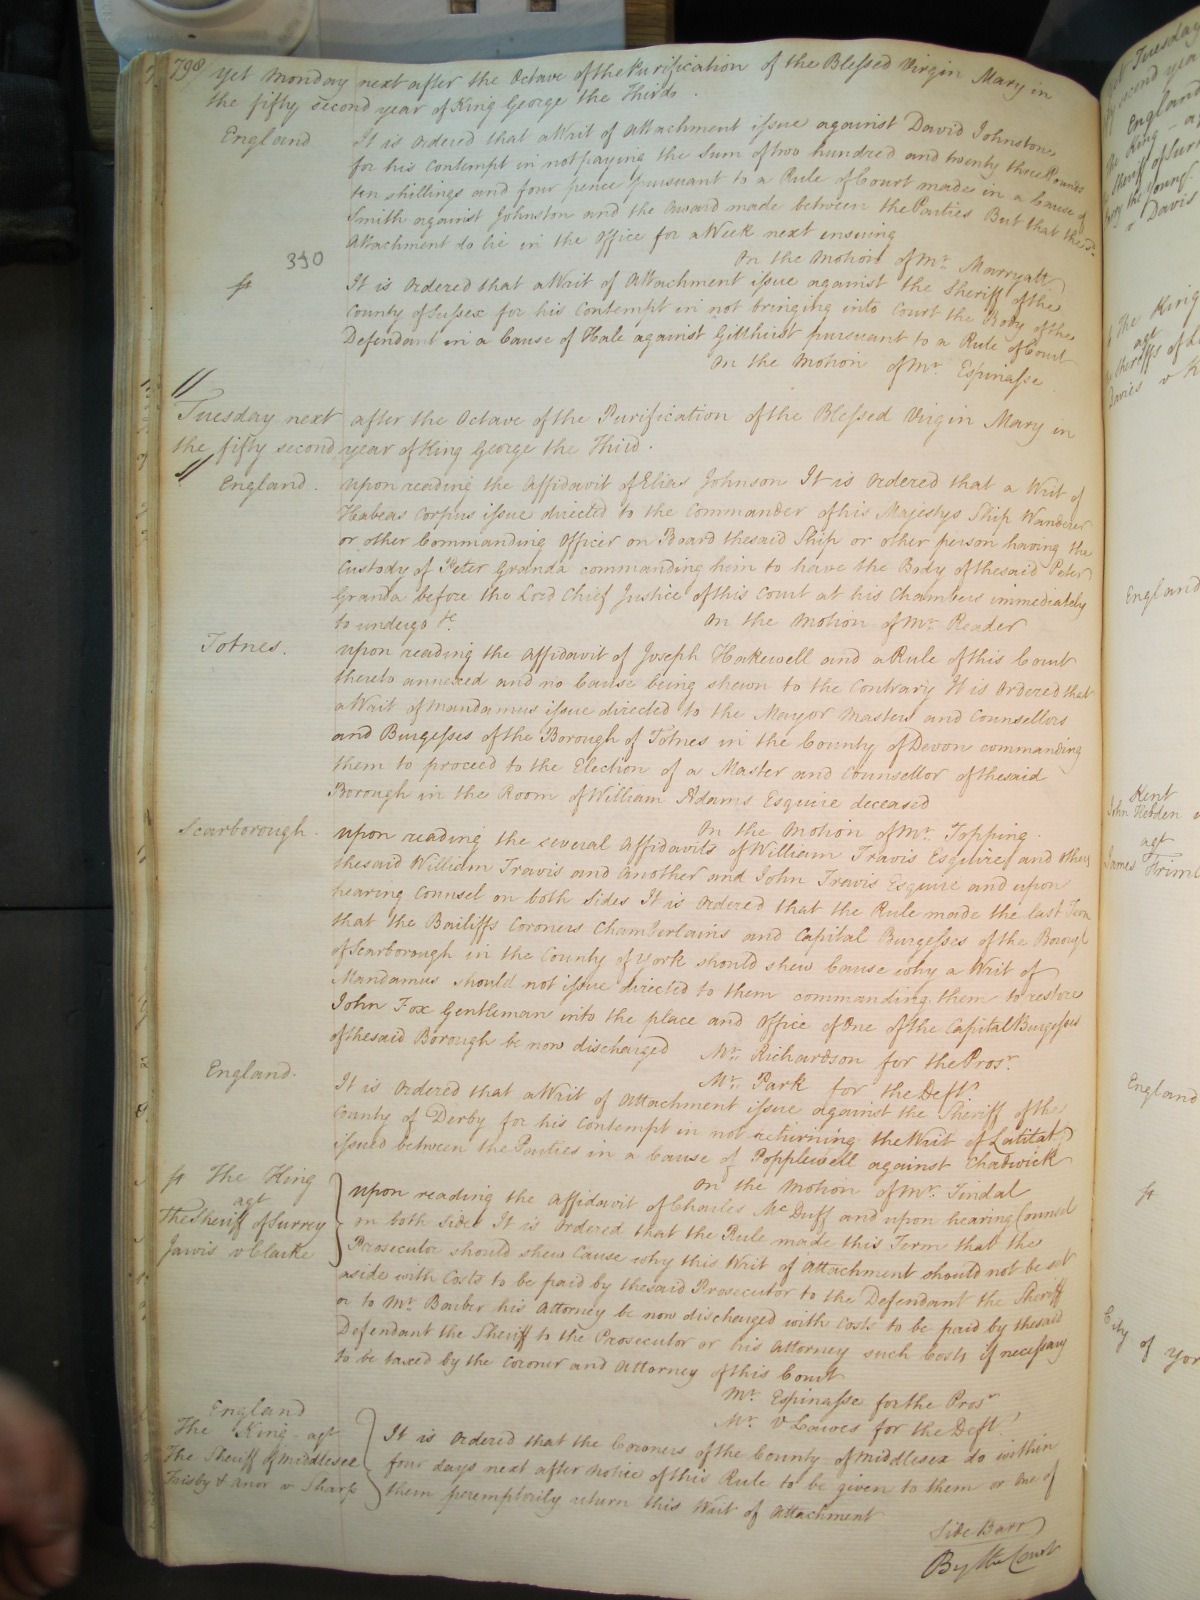 798 Yet Monday next after the Octave of the Purification of the Blessed Virgin Mary in
the fifty second year of King George the Third
England It is Ordered that a Writ of Attachment issue against David Johnston
for his Contempt in not paying the Sum of two hundred and twenty three Pounds
ten shillings and four pence pursuant to a Rule of Court made in a Cause of
Smith against Johnston and the Award made between the Parties But that the sd
Attachment do lie in the Office for a Week next ensuing
On the Motion of Mr Marryatt
350
It is Ordered that a Writ of Attachment issue against the Sheriff of the
County of Sussex for his Contempt in not bringing into Court the Body of the
Defendant in a Cause of Hale against Gillhirst pursuant to a Rule of Court
On the Motion of Mr Espinasse
Tuesday next after the Octave of the Purification of the Blessed Virgin Mary in
the fifty second year of King George the Third.
England. Upon reading the Affidavit of Elias Johnson It is Ordered that a Writ of
Habeas Corpus issue directed to the Commander of his Majestys Ship Wanderer
or other Commanding Officer on Board the said Ship or other person having the
Custody of Peter Granda commanding him to have the Body of the said Peter
Granda before the Lord Chief Justice of this Court at his Chambers immediately
to undergo &c.
On the Motion of Mr Reader
Totnes. Upon reading the Affidavit of Joseph Hakewell and a Rule of this Court
thereto annexed and no Cause being shewn to the Contrary It is Ordered that
a Writ of Mandamus issue directed to the Mayor Masters and Counsellors
and Burgesses of the Borough of Totnes in the County of Devon commanding
them to proceed to the Election of a Master and Counsellor of the said
Borough in the Room of William Adams Esquire deceased
On the Motion of Mr. Topping.
Scarborough. Upon reading the several Affidavits of William Travis Esquire and others
the said William Travis and another and John Travis Esquire and upon
hearing Counsel on both sides It is Ordered that the Rule made the last Term
that the Bailiffs Coroners Chamberlains and Capital Burgesses of the Borough
of Scarborough in the County of York should shew Cause why a Writ of
Mandamus should not issue directed to them commanding them to restore
John Fox Gentleman into the place and Office of One of the Capital Burgesses
of the said Borough be now discharged
Mr. Richardson for the Prosr.
Mr. Park for the Deft
England. It is Ordered that a Writ of Attachment issue against the Sheriff of the
County of Derby for his Contempt in not returning the Writ of Latitat
issued between the Parties in a Cause of Popplewell against Chadwick
On the Motion of Mr. Tindal
The King
agt
The Sheriff of Surrey
Jarvis v Clarke
Upon reading the Affidavit of Charles McDuff and upon hearing Counsel
on both sides It is Ordered that the Rule made this Term that the
Prosecutor should shew Cause why this Writ of Attachment should not be set
aside with Costs to be paid by the said Prosecutor to the Defendant the Sheriff
or to Mr. Barber his Attorney be now discharged with Costs to be paid by the said
Defendant the Sheriff to the Prosecutor or his Attorney such Costs if necessary
to be taxed by the Coroner and Attorney of this Court
Mr. Espinasse for the Prosr
Mr. V Lawes for the Deft
England
The King agt
The Sheriff of Middlesex
Frisby & Anor v Sharp
It is Ordered that the Coroners of the County of Middlesex do within
four days next after Notice of this Rule to be given to them or One of
them peremptorily return this Writ of Attachment
Side Barr
By the Court
England
England
Kent
John Hebden
agt
James
England
City of York